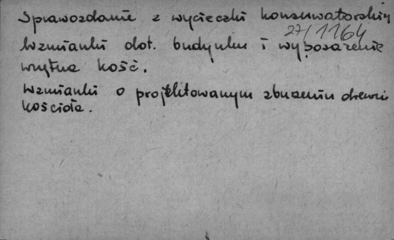 Sprawozdanie z wycieczki konserwatorskiej
27/1164
Wzmianki dot. budynku i wyposażenie
wnętrza kośc.
Wzmianki o projektowanym zburzeniu drewn
kościoła.